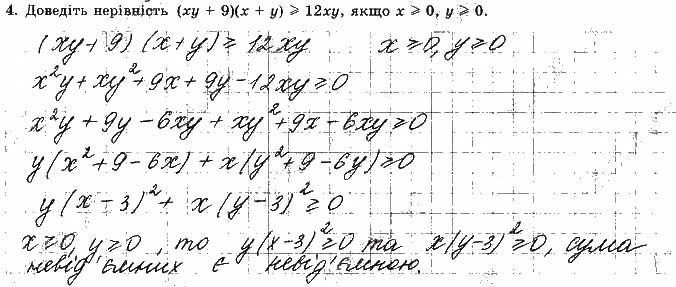 4. Доведіть нерівність (xy + 9)(x + y) ⩾ 12xy, якщо x ⩾ 0, y ⩾ 0.
(xy+9)(x+y) ≥ 12xy x≥0, y≥0
x²y+xy²+9x+9y-12xy≥0
x²y+9y-6xy+xy²+9x-6xy≥0
y(x²+9-6x)+x(y²+9-6y)≥0
y(x-3)²+ x(y-3)²≥0
x≥0, y≥0, то y(x-3)²≥0 та x(y-3)²≥0, сума
невід'ємних є невід'ємною.